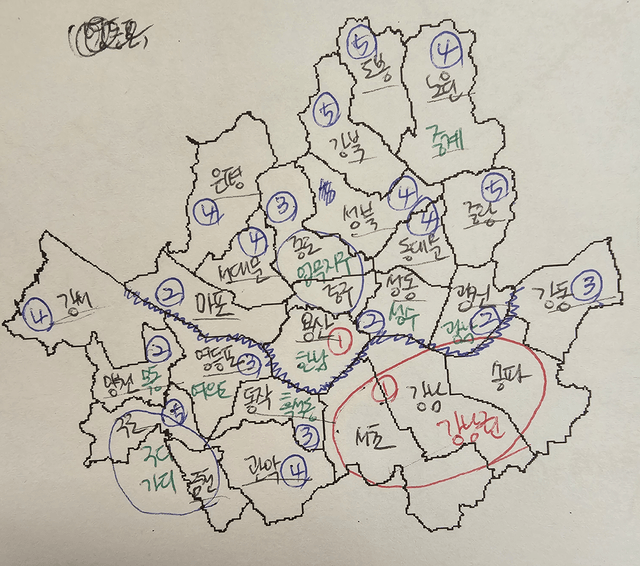 ⑤
도봉
④
노원
중계
⑤
강북
은평
④
③
성북
④
⑤
중랑
④
서대문
종로
업무지구
중구
④
동대문
④
강서
②
마포
용산
①
한남
②
성동
성수
광진
광남
②
강동
③
②
양천
목동
영등포
③
여의도
동작
흑석동
③
①
강남
송파
강남권
서초
구로
⑤
구디
가디
금천
관악
④